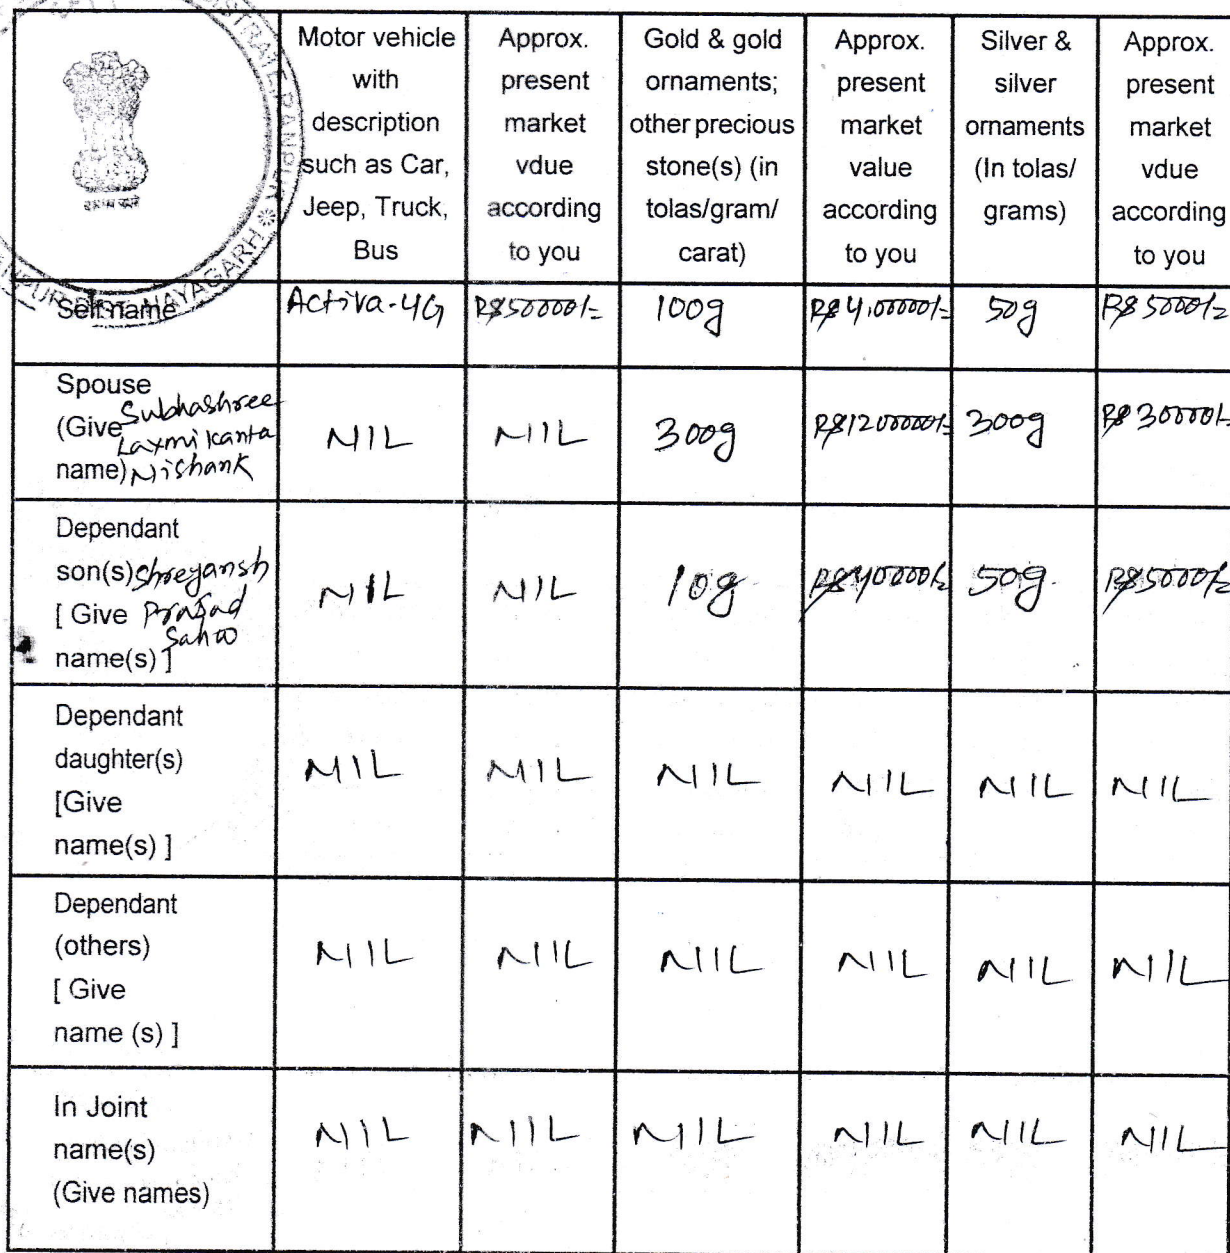 Motor vehicle with description such as Car, Jeep, Truck, Bus | Approx. present market vdue according to you | Gold & gold ornaments; other precious stone(s) (in tolas/gram/ carat) | Approx. present market value according to you | Silver & silver ornaments (In tolas/ grams) | Approx. present market vdue according to you
NAYAGARH
Self name | Activa-4G | Rs 50000/= | 100g | Rs 4,00000/= | 50g | Rs 5000/=
Spouse (Give name) Subhashree Laxmikanta Nishank | NIL | NIL | 300g | Rs 1200000/= | 300g | Rs 30000/=
Dependant son(s) [ Give name(s) ] Shreyansh Prasad Sahoo | NIL | NIL | 10g | Rs 40000/= | 50g. | Rs 5000/=
Dependant daughter(s) [Give name(s) ] | NIL | NIL | NIL | NIL | NIL | NIL
Dependant (others) [ Give name (s) ] | NIL | NIL | NIL | NIL | NIL | NIL
In Joint name(s) (Give names) | NIL | NIL | NIL | NIL | NIL | NIL